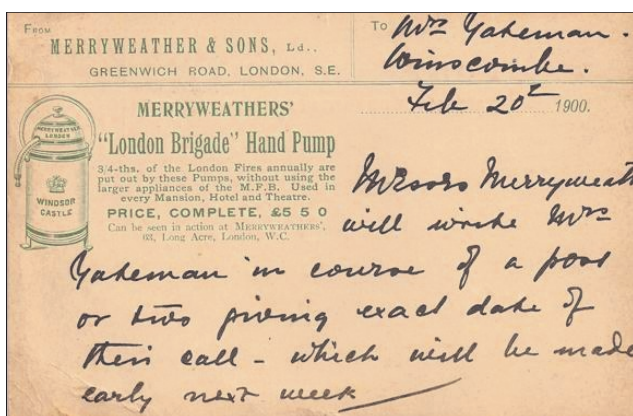 From
MERRYWEATHER & SONS, Ld.,
GREENWICH ROAD, LONDON, S.E.
To Mrs Yakeman.
Winscombe.
Feb 20th 1900.
MERRYWEATHER
LONDON
WINDSOR
CASTLE
MERRYWEATHERS'
"London Brigade" Hand Pump
3/4-ths. of the London Fires annually are
put out by these Pumps, without using the
larger appliances of the M.F.B. Used in
every Mansion, Hotel and Theatre.
PRICE, COMPLETE, £5 5 0
Can be seen in action at MERRYWEATHERS',
63, Long Acre, London, W.C.
Messrs Merryweath
will write Mrs
Yakeman in course of a post
or two giving exact date of
their call - which will be made
early next week